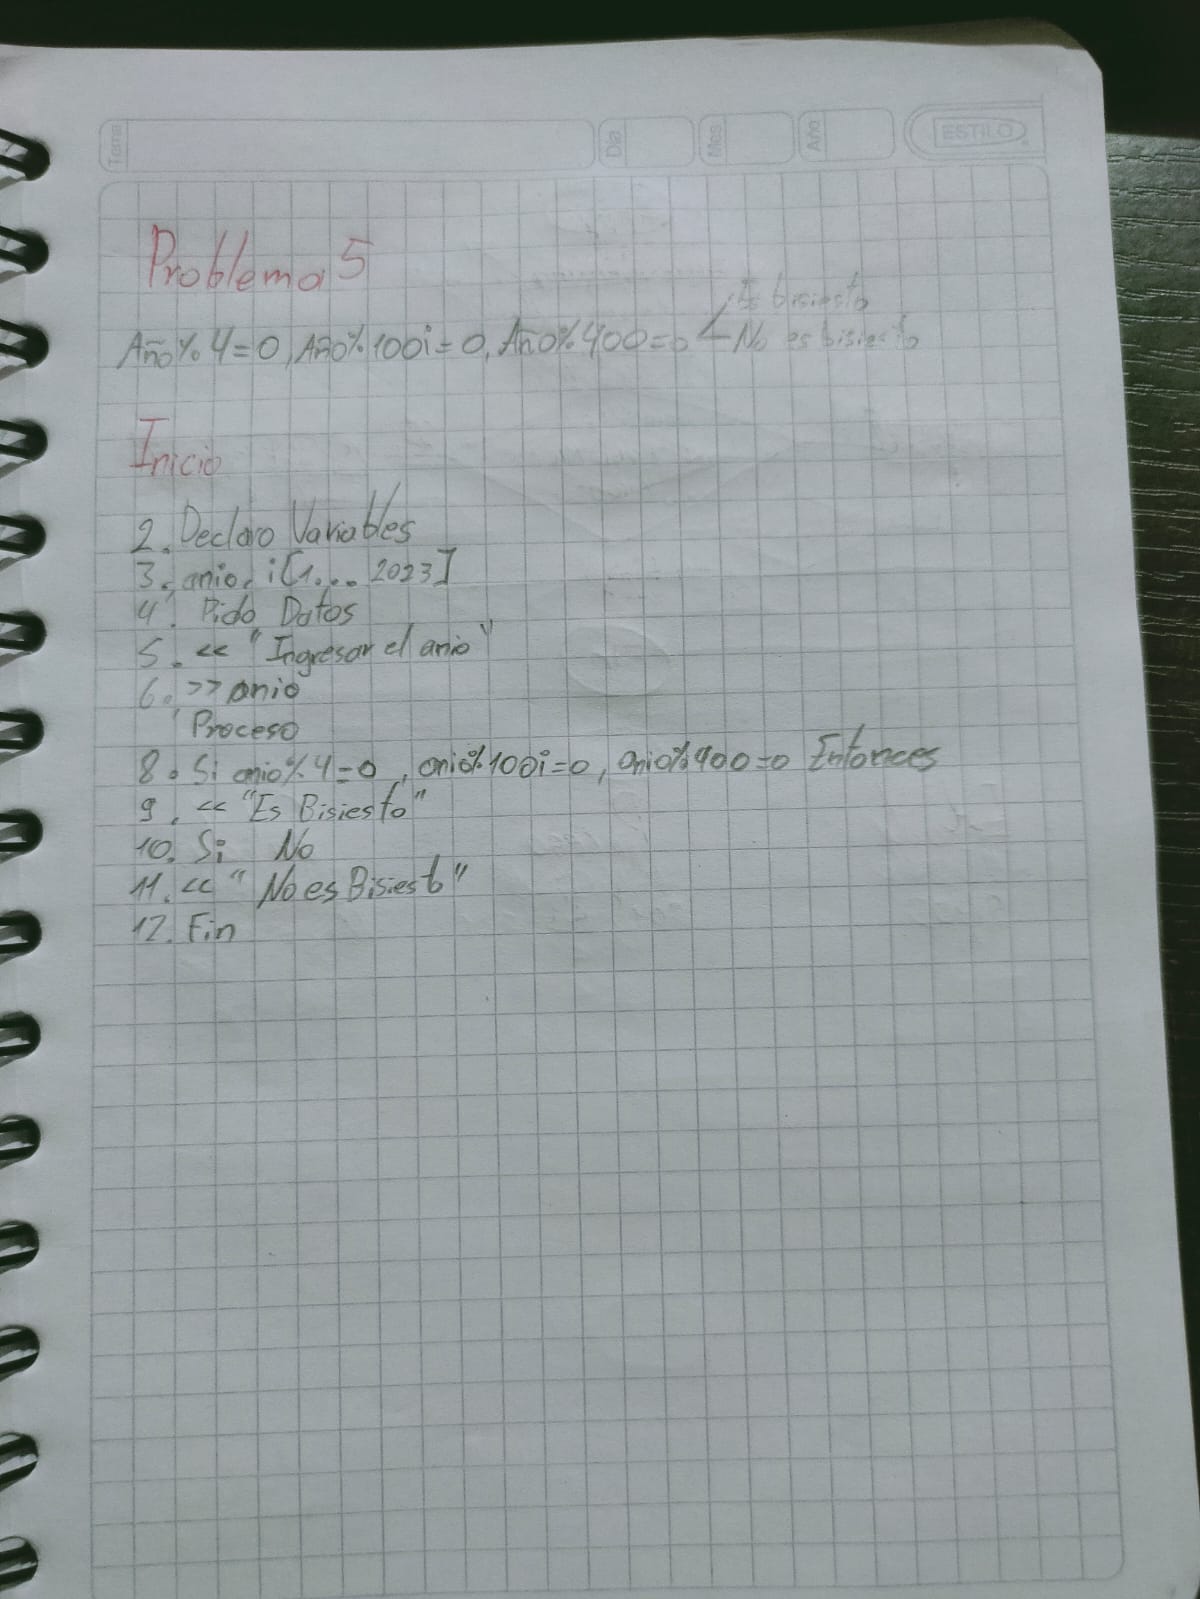 Tema Dia Mes Año ESTILO
Problema 5
Es bisiesto
Año%4=0, Año%100i=0, Año%400=0 < No es bisiesto
Inicio
2. Declaro Variables
3. anio, i[1... 2023]
4. Pido Datos
5. << "Ingresar el anio"
6. >> anio
Proceso
8. Si anio%4=0, anio%100i=0, anio%400=0 Entonces
9. << "Es Bisiesto"
10. Si No
11. << "No es Bisiesto"
12. Fin